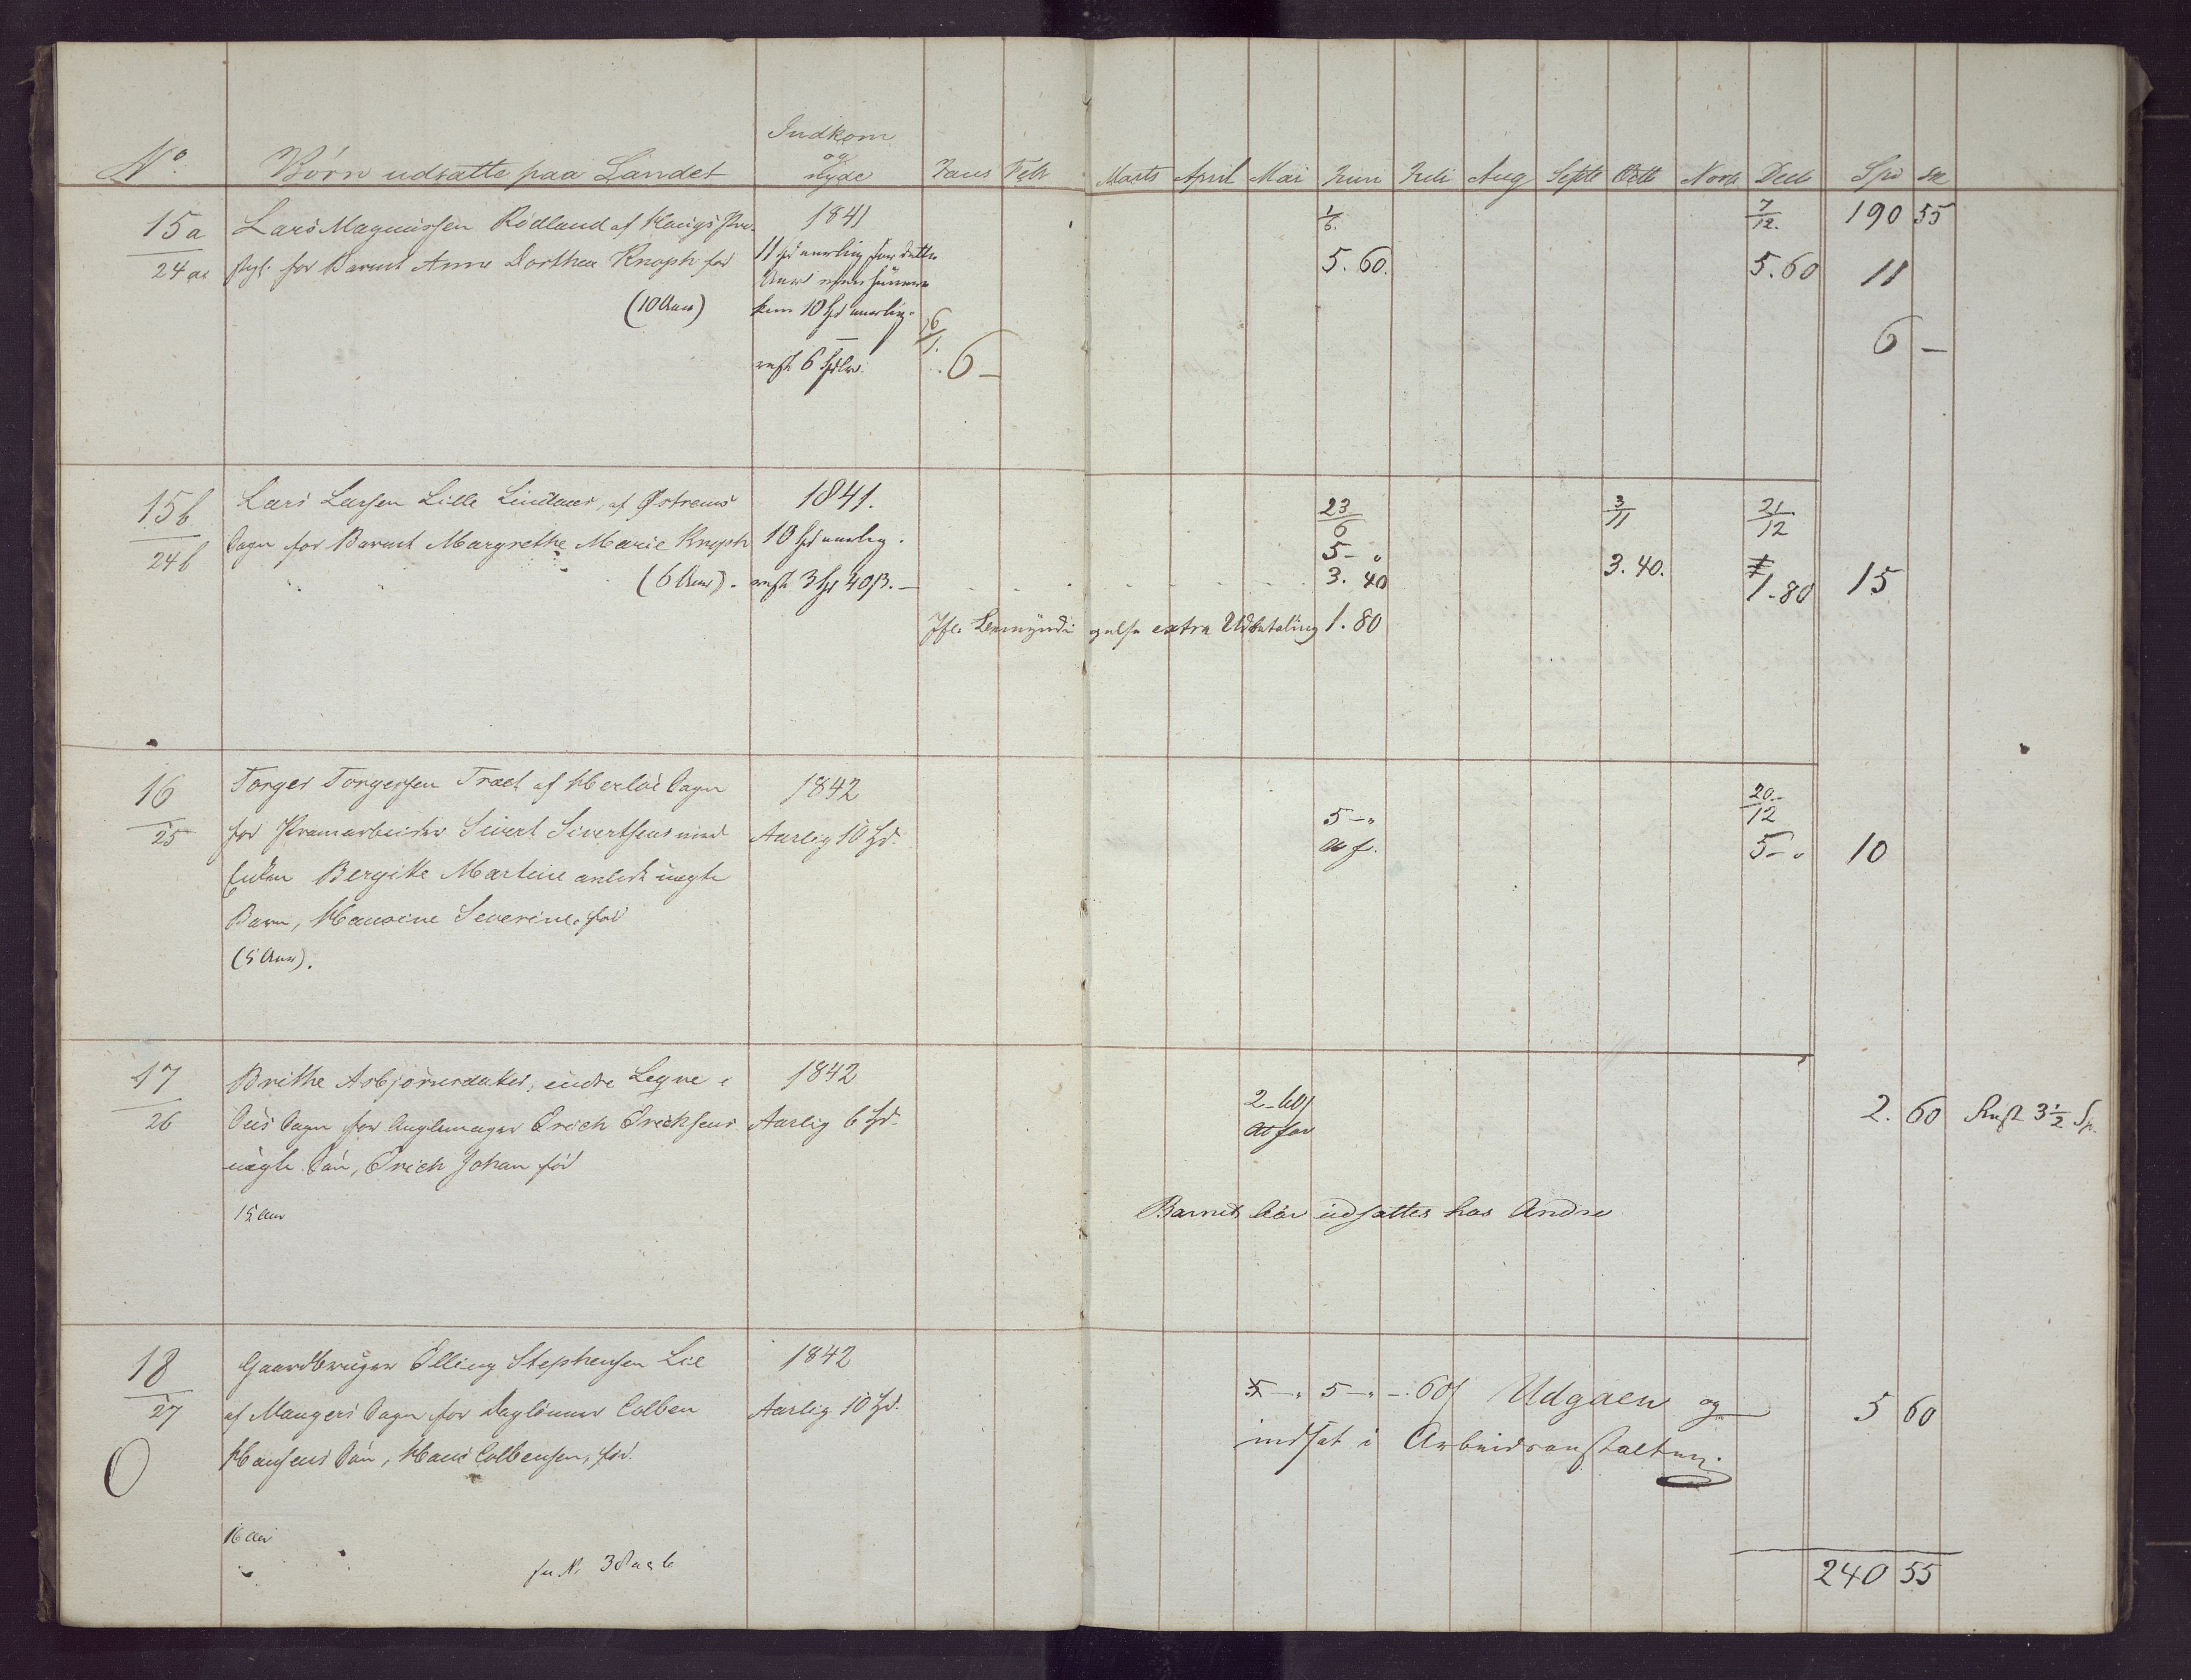 No. Børn udsatte paa Landet Indkom og nyde Janr Febr Marts April Mai Juni Juli Aug Septb Octb Novb Decb Spd
15a Lars Magnussen Rødland af Haugs Præ- 1841 1/6. 7/12. 190 55
24a stgl. for Barnet Anne Dorthea Knoph fød 11 spd aarlig for dette 5.60. 5.60 11
Aar
(10 Aar) 10 spd aarlig. 16/1. 6 –
rest 6 Spdlr. 6 –
15b Lars Larsen Lille Lindaas, af Østrems 1841. 23/6 3/11 21/12
24b Sogn for Barnet Margrethe Marie Knoph 10 spd aarlig. 5 – „ 3.40. 1.80 15
(6 Aar). rest 3 spd 40 β. – 3. 40
extra Udbetaling 1.80
16 Torger Torgersen Træet af Herløe Sogn 1842 20/12
25 for Pramarbeider Sivert Sivertsens med Aarlig 10 spd. 5 – „ 5 – „ 10
Enken Bergitte Martine avlede uægte af.
Barn, Hansine Severine, fød
(5 Aar).
17 Brithe Asbjørnsdatter, indre Legne i 1842 2 – 60
26 Ous Sogn for Erich Erichsens Aarlig 6 spd. 2. 60 Rest 3 ½ Sp.
uægte Søn, Erich Johan fød
15 Aar Barnet bør udsættes hos Andre
18 Gaardbruger Elling Stephensen Lie 1842 5 – „ 5 – „ – 60 Udgaaen og 5 60
27 af Mangers Sogn for Daglønner Colben Aarlig 10 spd. indsat i Arbeidsanstalten.
Hansens Søn, Hans Colbensen, fød.
O
16 Aar
240 55